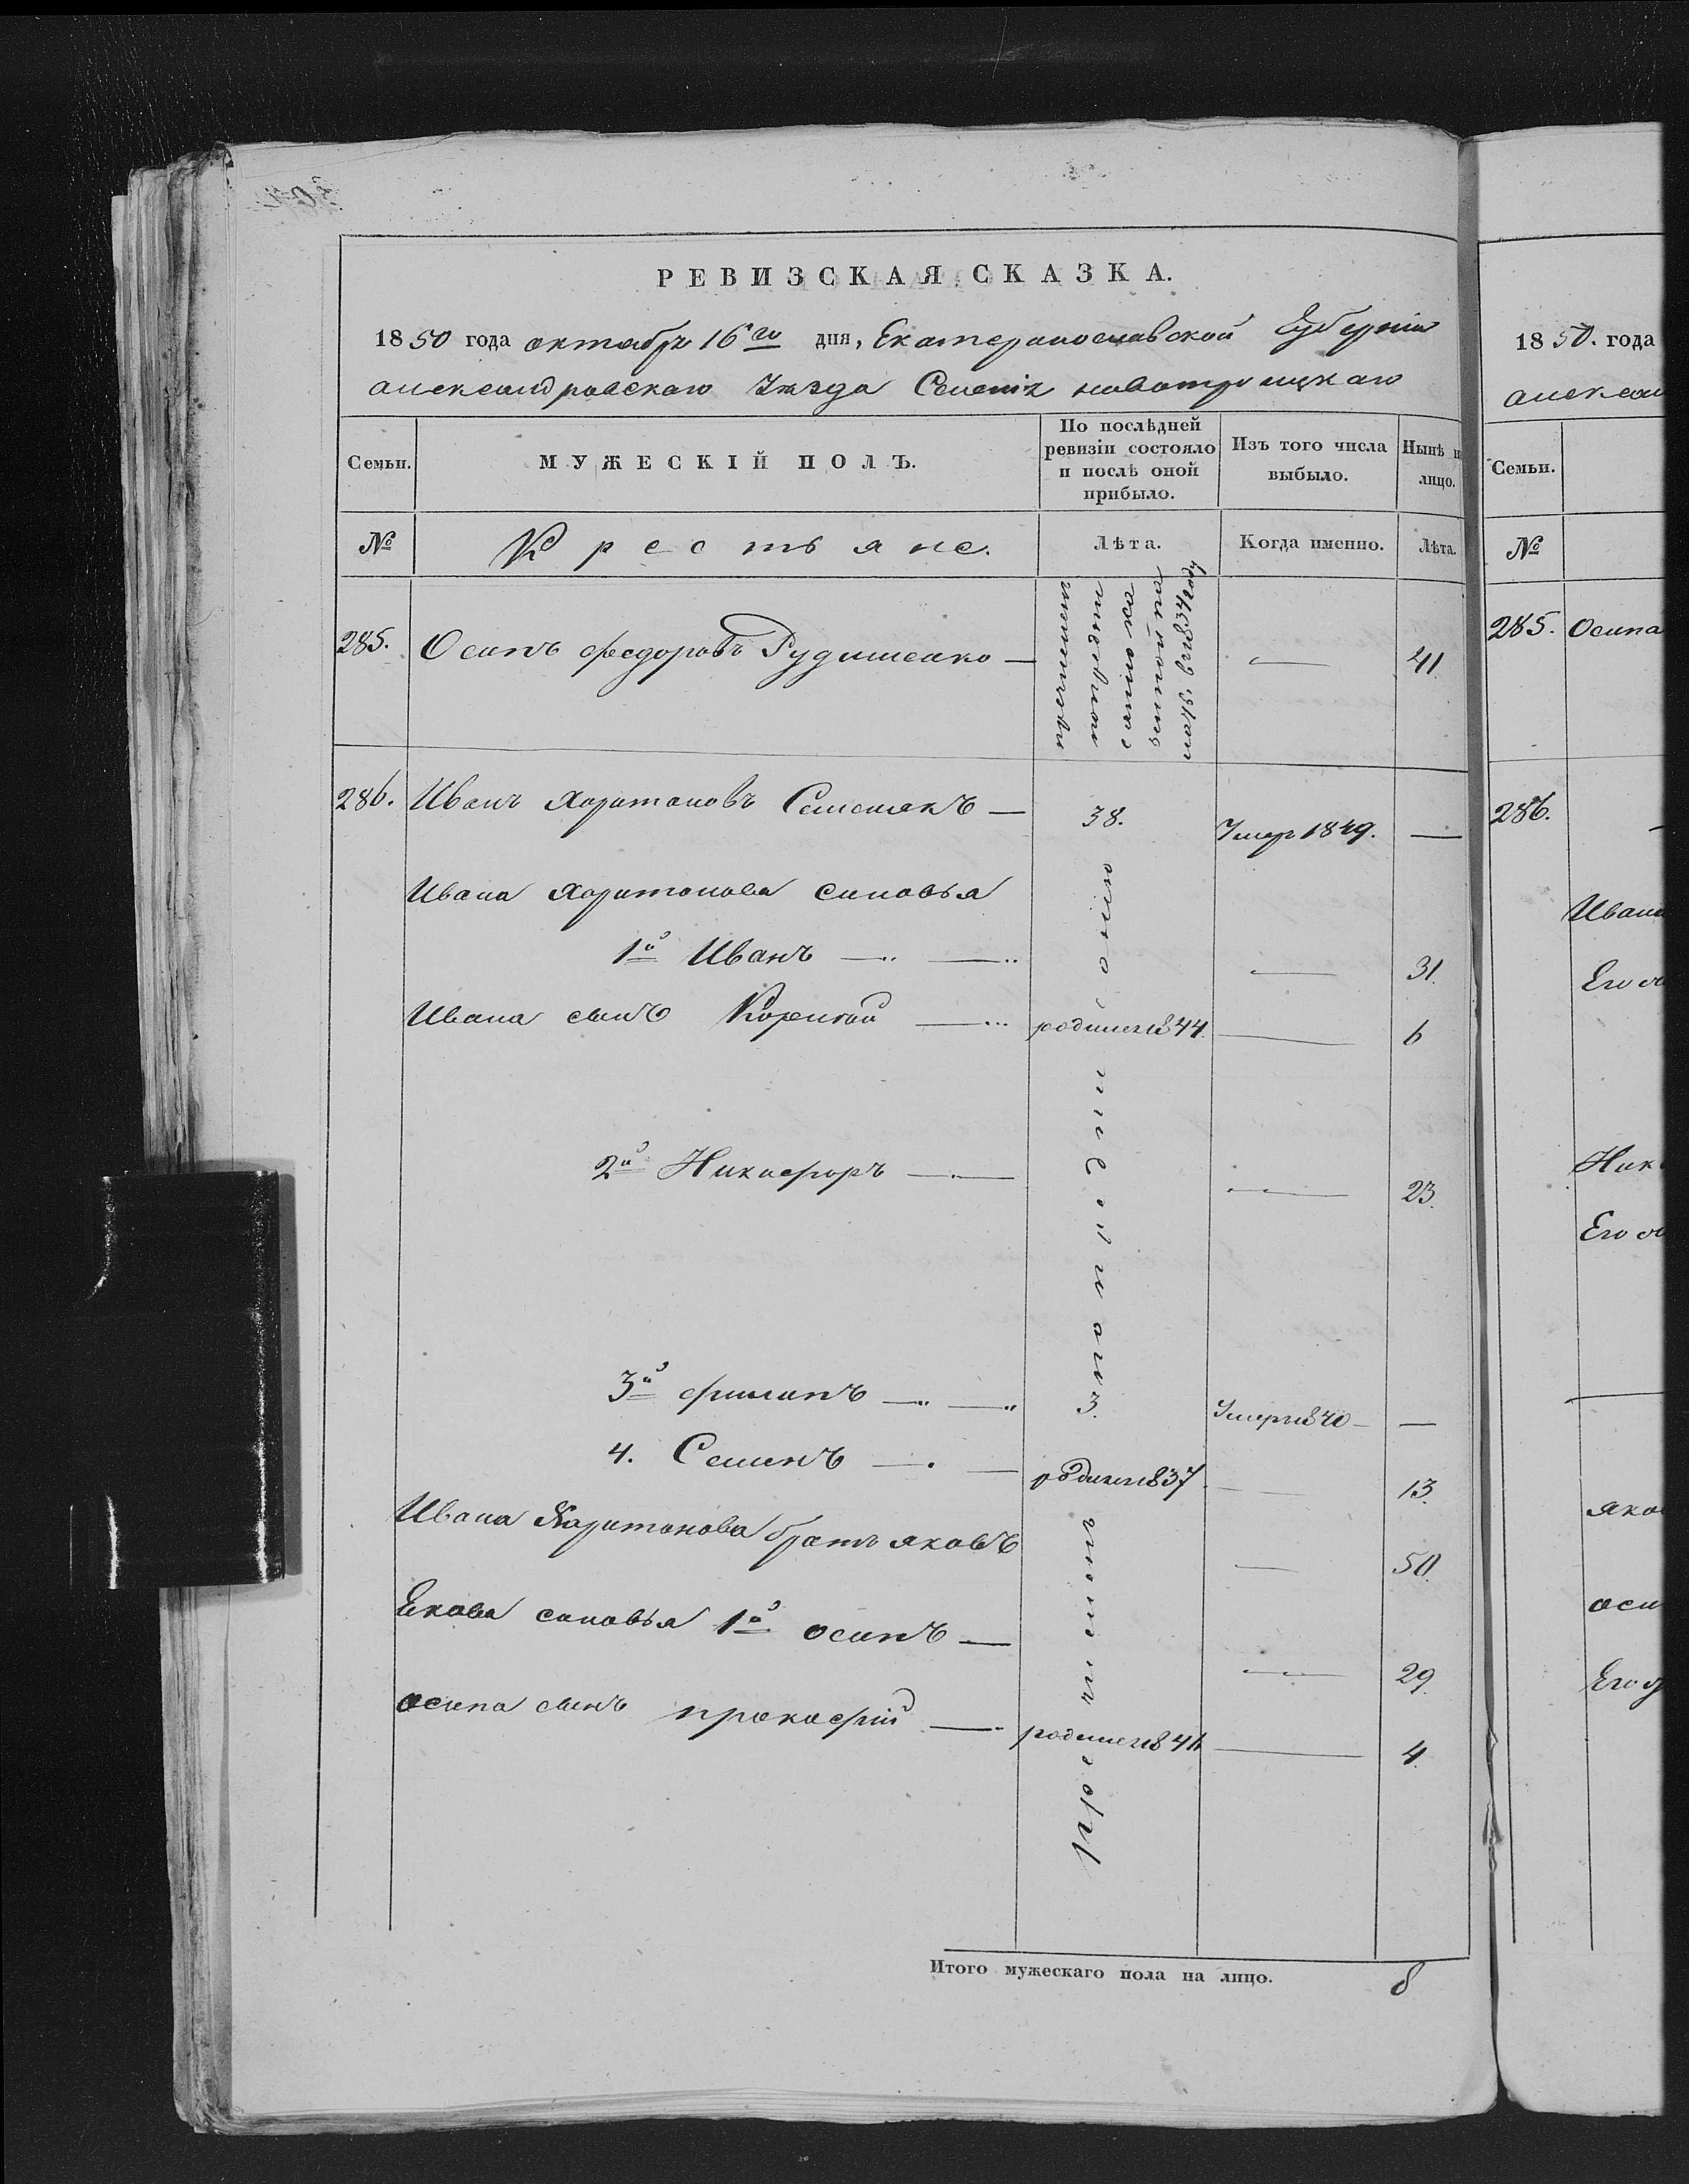 РЕВИЗСКАЯ СКАЗКА.
1850 года октября 16го дня, Екатеринославской Губернии
александровскаго Уезда Селенія новотроицкаго
Семьи.
МУЖЕСКІЙ ПОЛЪ.
По послѣдней ревизіи состояло и послѣ оной прибыло.
Изъ того числа выбыло.
Нынѣ н лицо.
№
Крестьяне.
Лѣта.
Когда именно.
Лѣта.
285. Осипъ федоровъ — 41.
причислен
1834 году
286. Иванъ Харитоновъ — 38. Умеръ 1849. —
Ивана Харитонова сыновья
1й Иванъ — — — 31.
Ивана сынъ — родился 1844. — 6
2й Никифоръ — — 23.
3й филипъ — — 3. Умеръ 1840 — —
4. Семенъ — — родился 1837. — 13.
Ивана Харитонова братъ яковъ — 50.
Екова сыновья 1й осипъ — — 29.
осипа сынъ прокофій — родился 184 — 4.
Итого мужескаго пола на лицо. 8
1850. года
алексан
Семьи.
№
285. Осипа
286. —
Ивана
Его
Ник
Его
яко
оси
Его